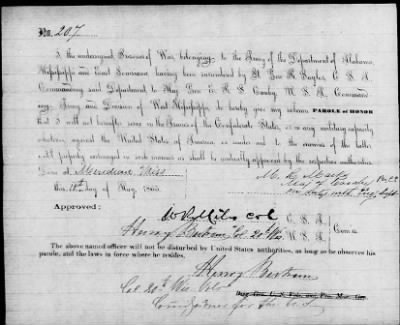 No. 207
I, the undersigned Prisoner of War, belonging to the Army of the Department of Alabama,
Mississippi and East Louisiana, having been surrendered by Lt. Gen. R. Taylor, C. S. A.
Commanding said Department, to Maj. Gen. E. R. S. Canby, U. S. A. Command
ing Army and Division of West Mississippi, do hereby give my solemn PAROLE of HONOR
that I will not hereafter serve in the Armies of the Confederate States, or in any military capacity
whatever, against the United States of America, or render aid to the enemies of the latter,
until properly exchanged in such manner as shall be mutually approved by the respective authorities.
Done at Meridian Miss
this 11th day of May 1865.
M.
Maj of Cavalry
on duty with
Approved:
Col C. S. A.
Henry Bertram Col 20th Wis U. S. A.
Com's.
The above named officer will not be disturbed by United States authorities, as long as he observes his
parole, and the laws in force where he resides.
Henry Bertram
Col 20th Wis Vols
Commissioner for the U. S.